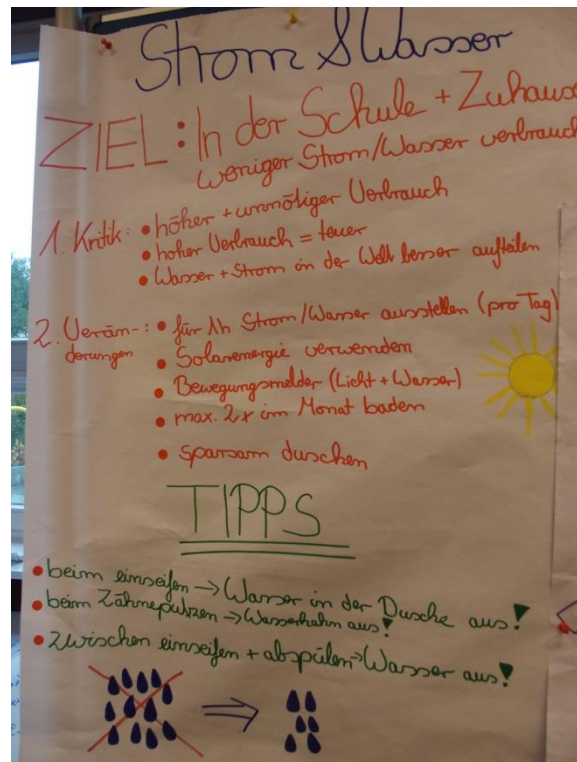 Strom & Wasser
ZIEL: In der Schule + Zuhause
weniger Strom/Wasser verbrauch
1. Kritik: • höher + unnötiger Verbrauch
• hoher Verbrauch = teuer
• Wasser + Strom in der Welt besser aufteilen
2. Verän-: • für 1h Strom/Wasser ausstellen (pro Tag)
derungen
• Solarenergie verwenden
• Bewegungsmelder (Licht + Wasser)
• max. 2x im Monat baden
• sparsam duschen
TIPPS
• beim einseifen → Wasser in der Dusche aus!
• beim Zähneputzen → Wasserhahn aus!
• zwischen einseifen + abspülen → Wasser aus!